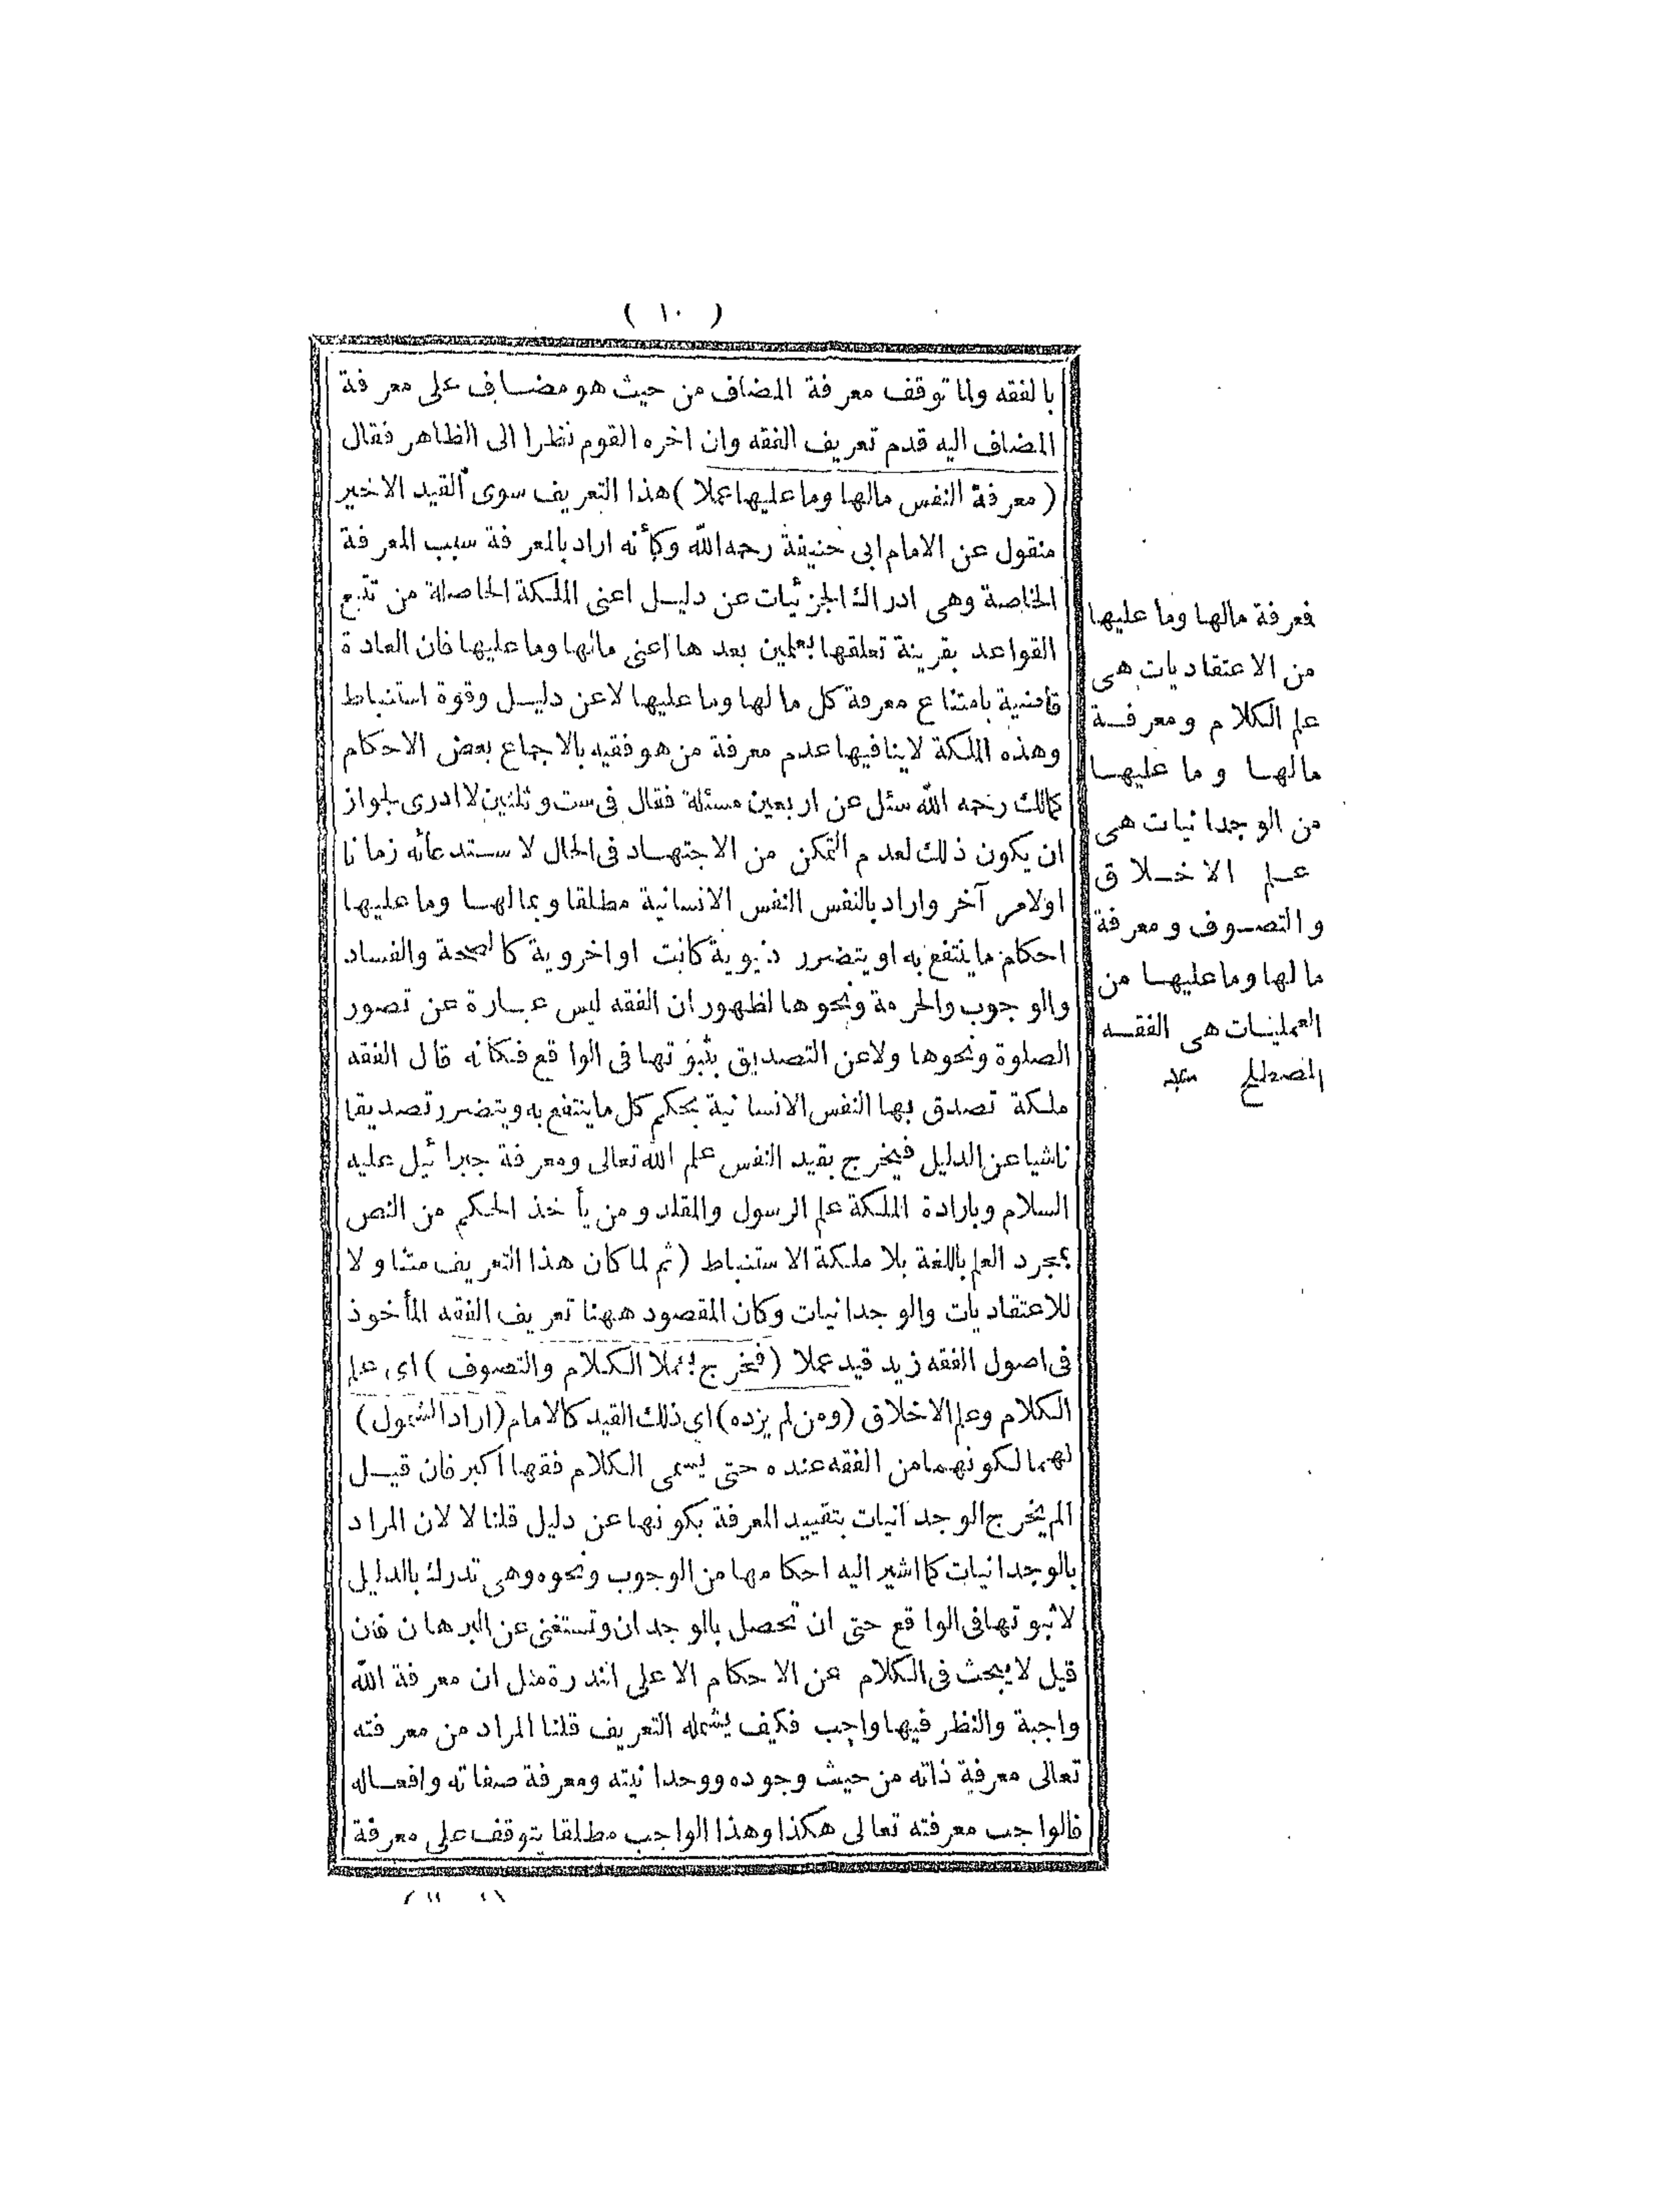 ( ١٠ )
بالفقه ولما توقف معرفة المضاف من حيث هو مضاف على معرفة
المضاف اليه قدم تعريف الفقه وان اخره القوم نظرا الى الظاهر فقال
( معرفة النفس مالها وما عليها عملا ) هذا التعريف سوى القيد الاخير
منقول عن الامام ابى حنيفة رحمه الله وكأنه اراد بالمعرفة سبب المعرفة
الخاصة وهى ادراك الجزئيات عن دليل اعنى الملكة الحاصلة من تتبع
القواعد بقرينة تعلقها بعامين بعدها اعنى مالها وما عليها فان العادة
قاضية بامتناع معرفة كل مالها وما عليها لا عن دليل وقوة استنباط
وهذه الملكة لا ينافيها عدم معرفة من هو فقيه بالاجماع بعض الاحكام
كمالك رحمه الله سئل عن اربعين مسئلة فقال فى ست وثلثين لا ادرى لجواز
ان يكون ذلك لعدم التمكن من الاجتهاد فى الحال لاستدعائه زمانا
اولامر آخر واراد بالنفس النفس الانسانية مطلقا وبمالها وما عليها
احكام ما ينتفع به او يتضرر دنيوية كانت او اخروية كالصحة والفساد
والوجوب والحرمة ونحوها لظهور ان الفقه ليس عبارة عن تصور
الصلوة ونحوها ولا عن التصديق بثبوتها فى الواقع فكانه قال الفقه
ملكة تصدق بها النفس الانسانية بحكم كل ما ينتفع به ويتضرر تصديقا
ناشيا عن الدليل فيخرج بقيد النفس علم الله تعالى ومعرفة جبرائيل عليه
السلام وبارادة الملكة علم الرسول والمقلد ومن يأخذ الحكم من النص
بمجرد العلم باللغة بلا ملكة الاستنباط ( ثم لما كان هذا التعريف متناولا
للاعتقاديات والوجدانيات وكان المقصود ههنا تعريف الفقه المأخوذ
فى اصول الفقه زيد قيد عملا ( فخرج بعملا الكلام والتصوف ) اى علم
الكلام وعلم الاخلاق ( ومن لم يزده ) اى ذلك القيد كالامام ( اراد الشمول )
لهما لكونهما من الفقه عنده حتى يسمى الكلام فقها اكبر فان قيل
الم يخرج الوجدانيات بتقييد المعرفة بكونها عن دليل قلنا لا لان المراد
بالوجدانيات كما اشير اليه احكامها من الوجوب ونحوه وهى تدرك بالدليل
لا ثبوتها فى الواقع حتى ان تحصل بالوجدان وتستغنى عن البرهان فان
قيل لا يبحث فى الكلام عن الاحكام الا على الندرة مثل ان معرفة الله
واجبة والنظر فيها واجب فكيف يشمله التعريف قلنا المراد من معرفته
تعالى معرفة ذاته من حيث وجوده ووحدانيته ومعرفة صفاته وافعاله
فالواجب معرفته تعالى هكذا وهذا الواجب مطلقا يتوقف على معرفة
فمعرفة مالها وما عليها
من الاعتقاديات هى
علم الكلام ومعرفة
مالها وما عليها
من الوجدانيات هى
علم الاخلاق
والتصوف ومعرفة
مالها وما عليها من
العمليات هى الفقه
المصطلح